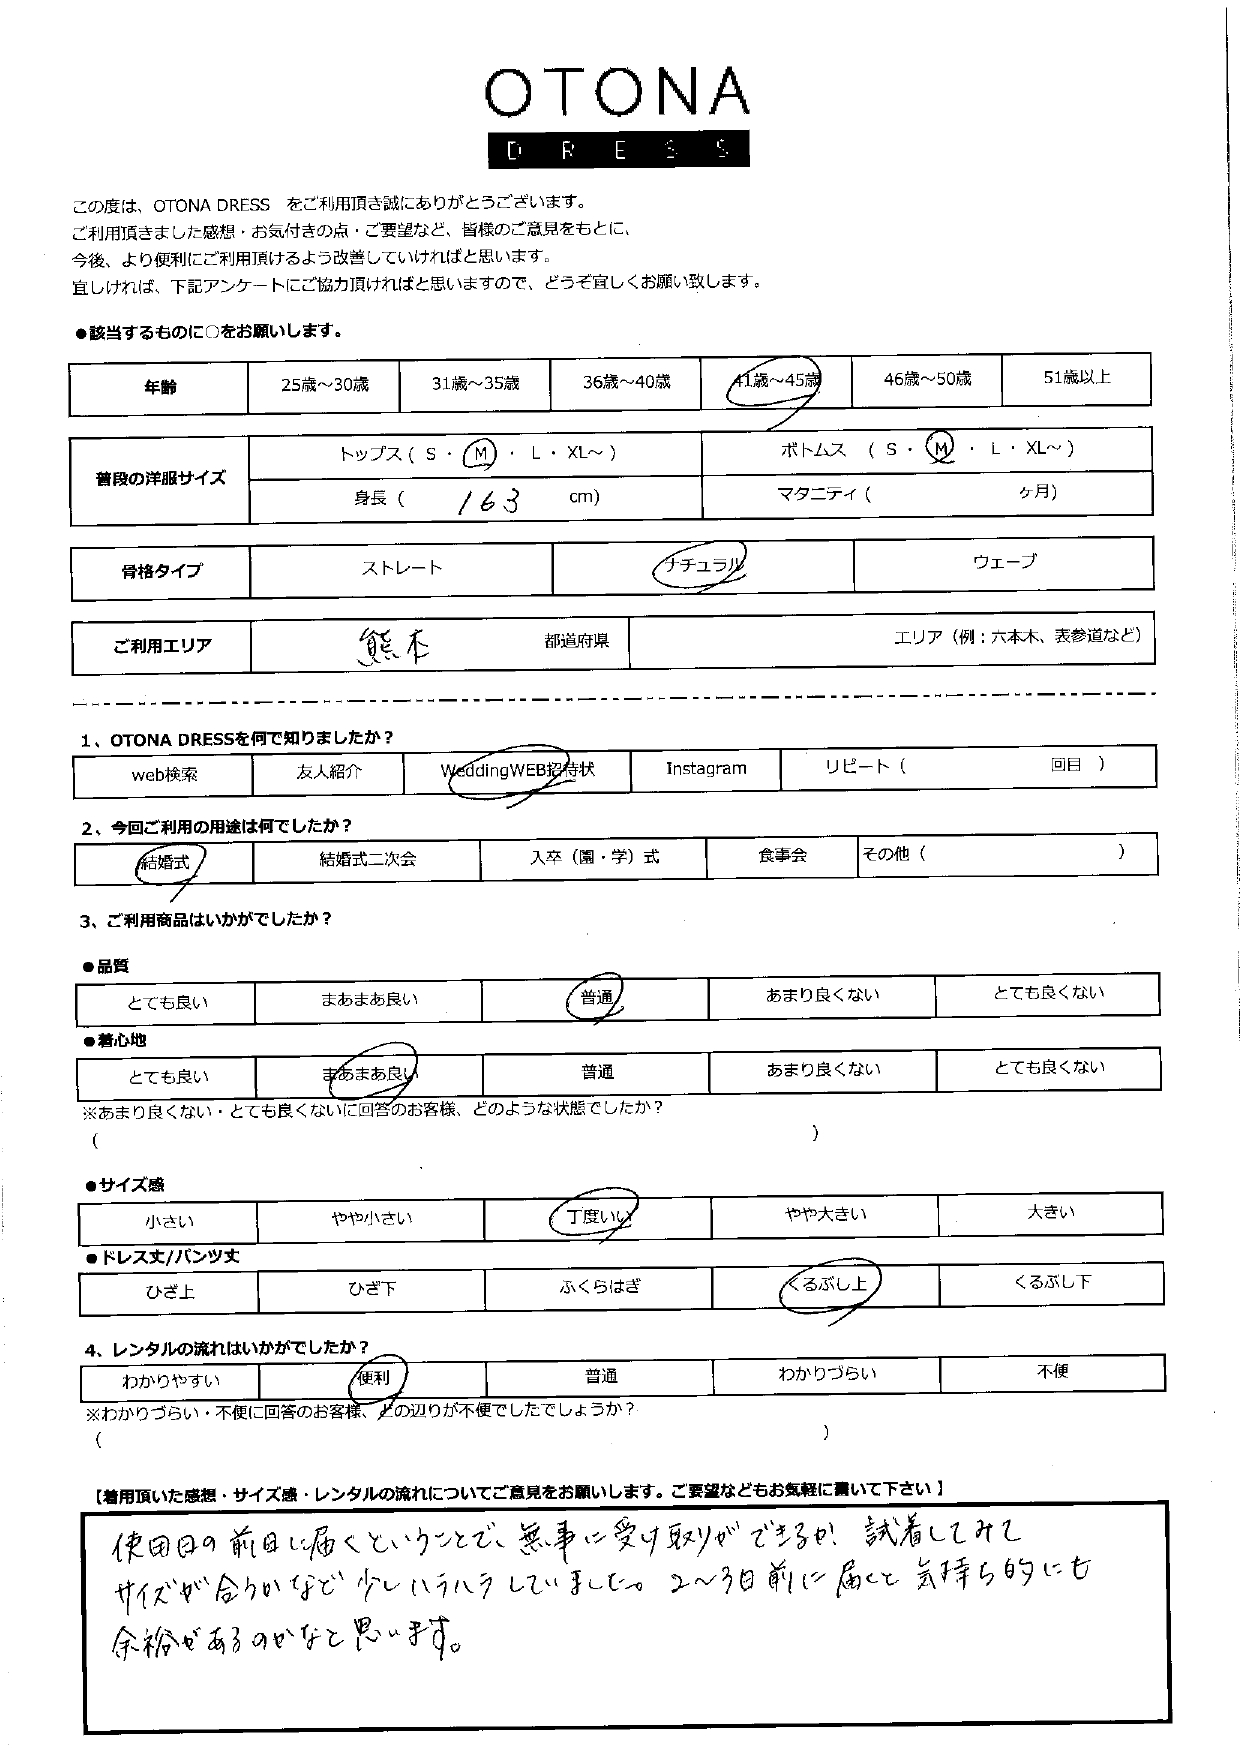 OTONA
DRESS
この度は、OTONA DRESS をご利用頂き誠にありがとうございます。
ご利用頂きました感想・お気付きの点・ご要望など、皆様のご意見をもとに、
今後、より便利にご利用頂けるよう改善していければと思います。
宜しければ、下記アンケートにご協力頂ければと思いますので、どうぞ宜しくお願い致します。
●該当するものに○をお願いします。
年齢 25歳～30歳 31歳～35歳 36歳～40歳 41歳～45歳 46歳～50歳 51歳以上
普段の洋服サイズ トップス ( S ・ M ・ L ・ XL～ ) ボトムス ( S ・ M ・ L ・ XL～ )
身長 ( 163 cm) マタニティ ( ヶ月)
骨格タイプ ストレート ナチュラル ウェーブ
ご利用エリア 熊本 都道府県 エリア（例：六本木、表参道など）
1、OTONA DRESSを何で知りましたか？
web検索 友人紹介 WeddingWEB招待状 Instagram リピート ( 回目 )
2、今回ご利用の用途は何でしたか？
結婚式 結婚式二次会 入卒（園・学）式 食事会 その他 ( )
3、ご利用商品はいかがでしたか？
●品質
とても良い まあまあ良い 普通 あまり良くない とても良くない
●着心地
とても良い まあまあ良い 普通 あまり良くない とても良くない
※あまり良くない・とても良くないに回答のお客様、どのような状態でしたか？
( )
●サイズ感
小さい やや小さい 丁度いい やや大きい 大きい
●ドレス丈/パンツ丈
ひざ上 ひざ下 ふくらはぎ くるぶし上 くるぶし下
4、レンタルの流れはいかがでしたか？
わかりやすい 便利 普通 わかりづらい 不便
※わかりづらい・不便に回答のお客様、どの辺りが不便でしたでしょうか？
( )
【着用頂いた感想・サイズ感・レンタルの流れについてご意見をお願いします。ご要望などもお気軽に書いて下さい】
使用日の前日に届くということで、無事に受け取りができるか、試着してみて
サイズが合うかなど少しハラハラしていました。2～3日前に届くと気持ち的にも
余裕があるのかなと思います。